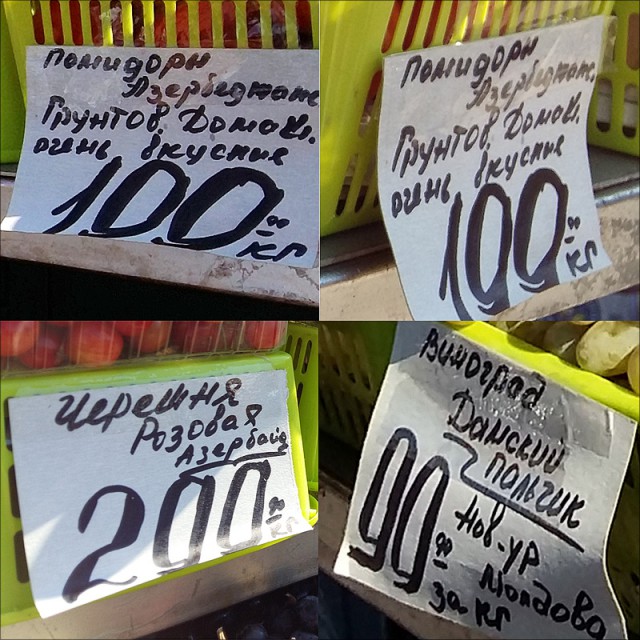 Помидоры
Азербеджанс
Грунтов. Домаш.
очень вкусные
100 00
кг
Помидоры
Азербеджанс
Грунтов. Домаш.
очень вкусные
100 00
кг
Черешня
Розовая
Азербайд
200 00
кг
Виноград
Дамский
Пальчик
90 00
Нов-ур
Молдова
за кг